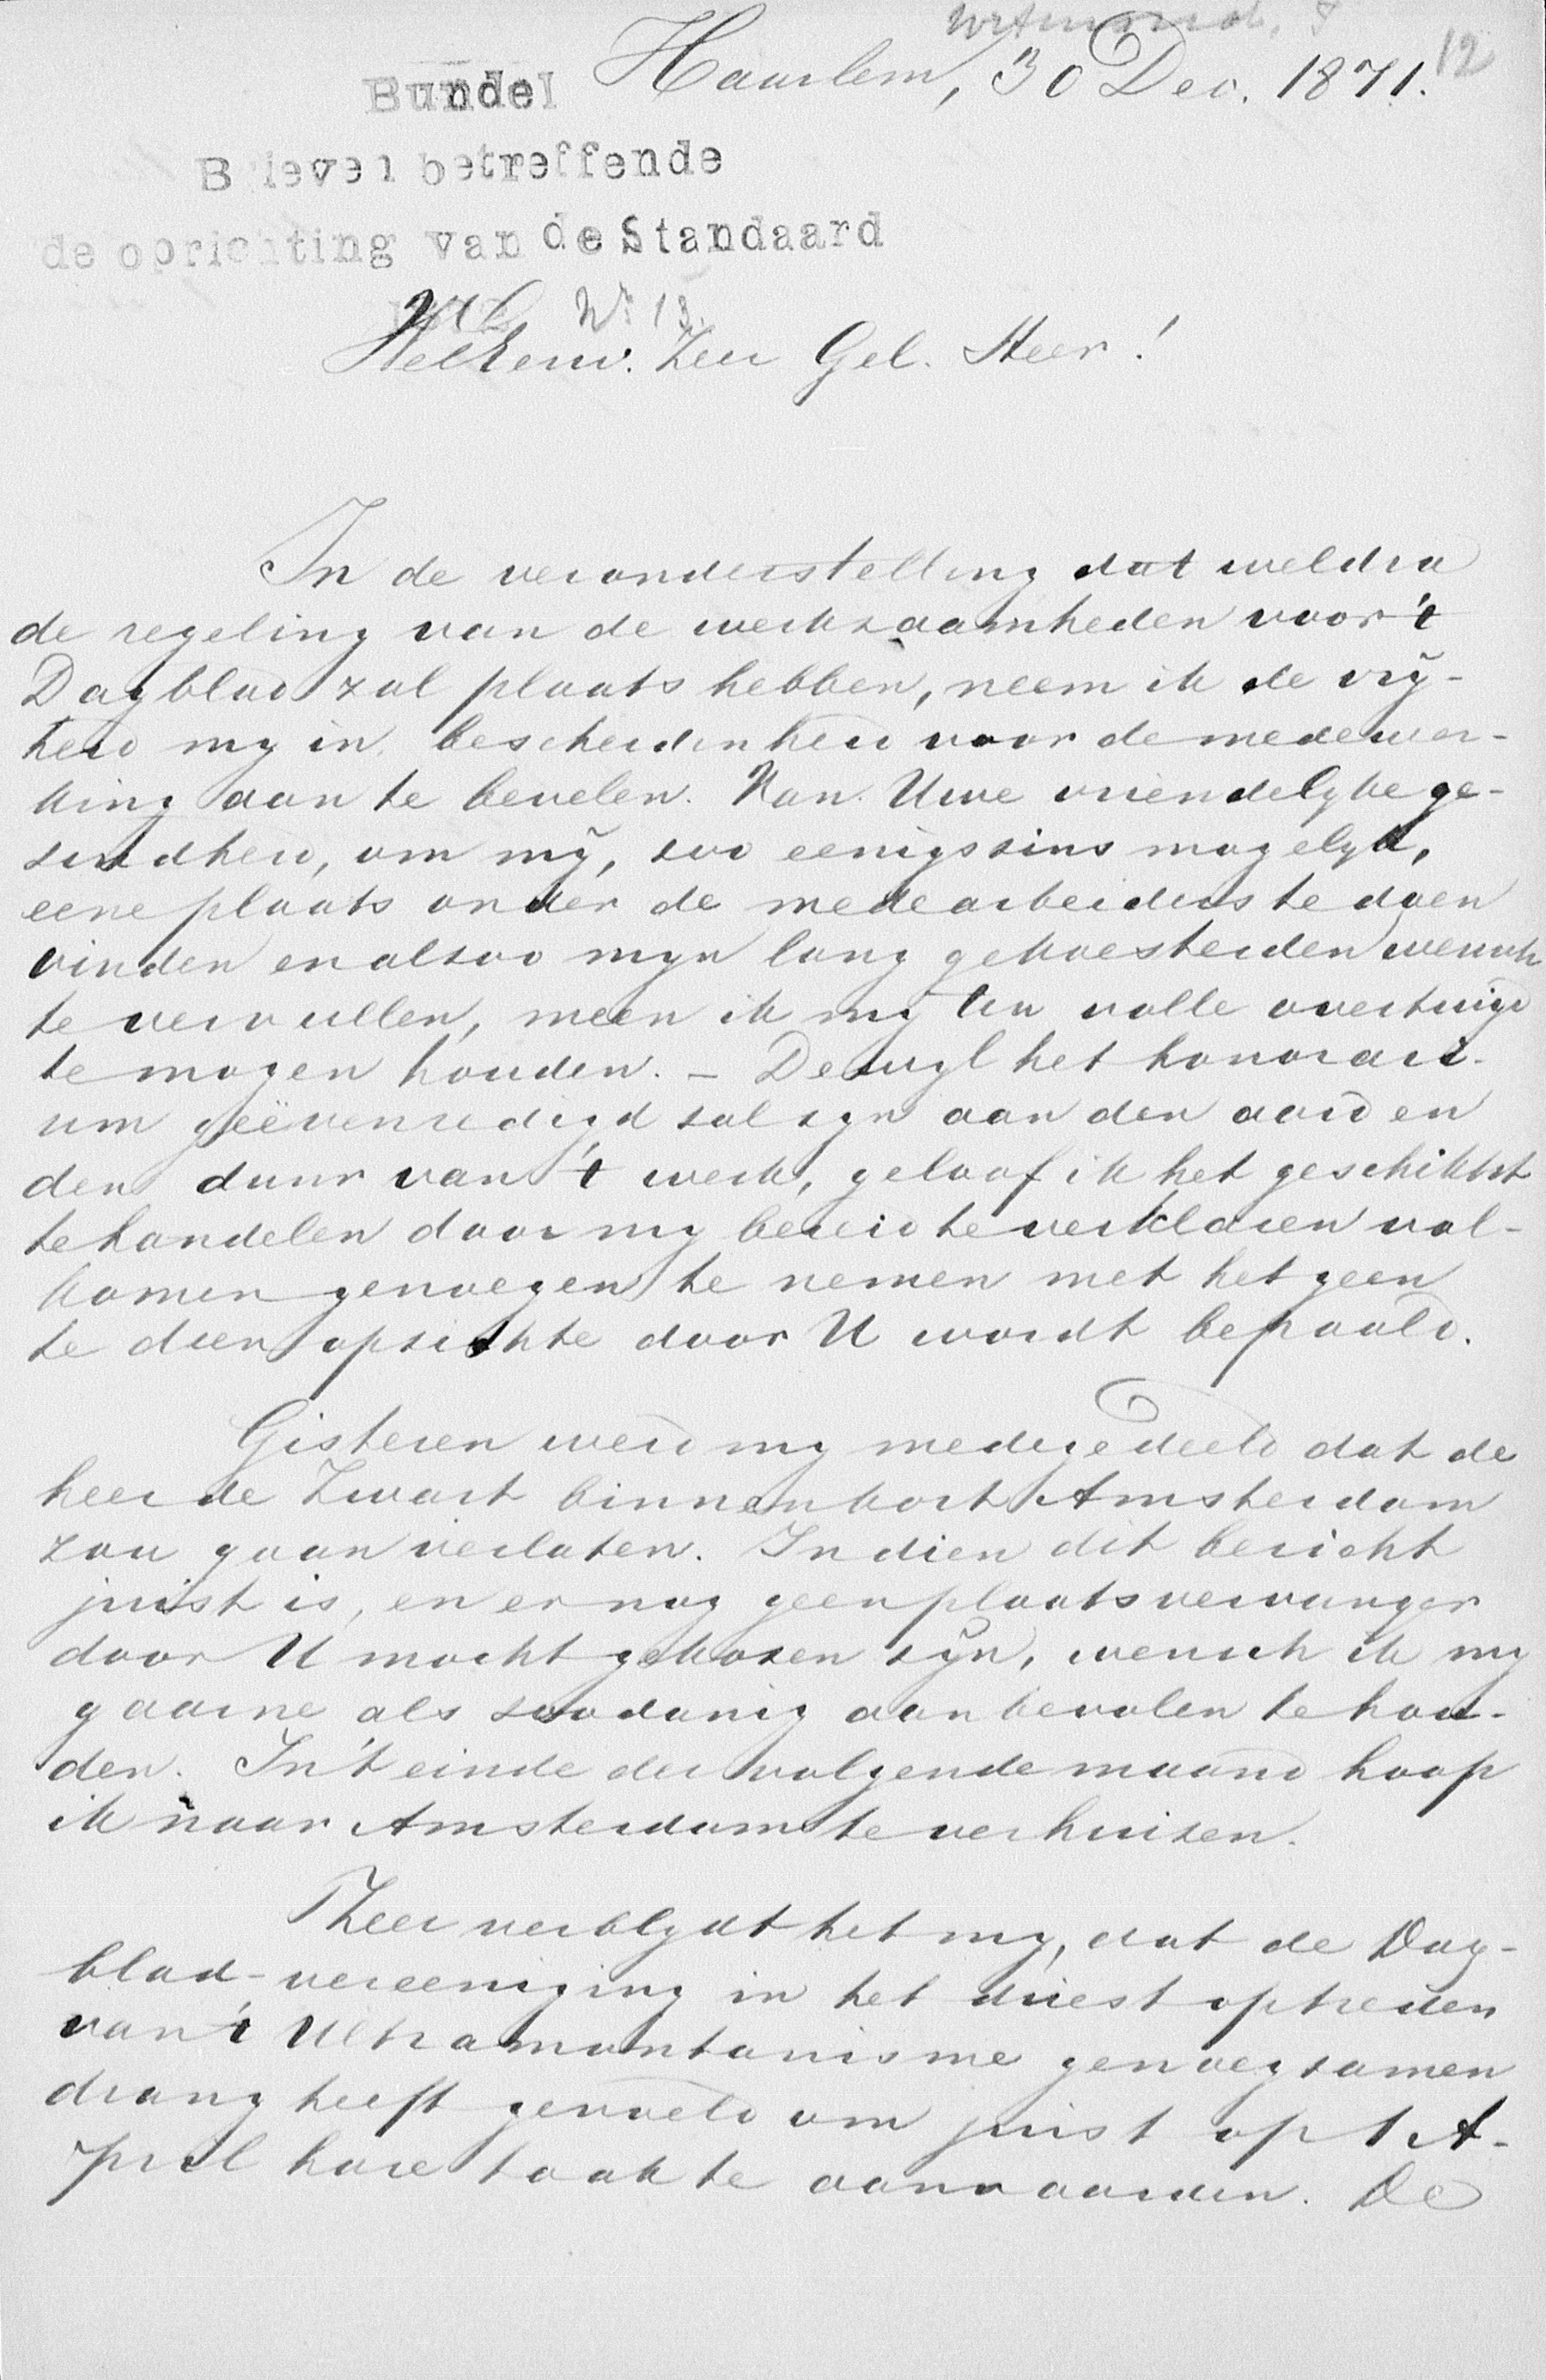 Haarlem, 30 Dec. 1871.
12
Bundel
Brieven betreffende
de oprichting van de Standaard
No 13.
WelEerw. Zeer Gel. Heer!
In de veronderstelling dat weldra
de regeling van de werkzaamheden voor 't
Dagblad zal plaats hebben, neem ik de vrij-
heid mij in bescheidenheid voor de medewer-
king aan te bevelen. Van Uwe vriendelijke ge-
zindheid, om mij, zoo eenigszins mogelijk,
eene plaats onder de medearbeiders te doen
vinden en alzoo mijn lang gekoesterden wensch
te vervullen, meen ik mij ten volle overtuigd
te mogen houden. – Dewijl het honorari-
um geëvenredigd zal zijn aan den aard en
den duur van 't werk, geloof ik het geschiktst
te handelen door mij bereid te verklaren vol-
komen genoegen te nemen met hetgeen
te dien opzichte door U wordt bepaald.
Gisteren werd mij medegedeeld dat de
heer de Zwart binnenkort Amsterdam
zou gaan verlaten. Indien dit bericht
juist is, en er nog geen plaatsvervanger
door U mocht gekozen zijn, wensch ik mij
gaarne als zoodanig aanbevolen te hou-
den. In 't einde der volgende maand hoop
ik naar Amsterdam te verhuizen.
Zeer verblijdt het mij, dat de Dag-
blad-vereeniging in het driest optreden
van 't Ultramontanisme genoegzamen
drang heeft gevoeld om juist op 1 A-
pril hare taak te aanvaarden. De